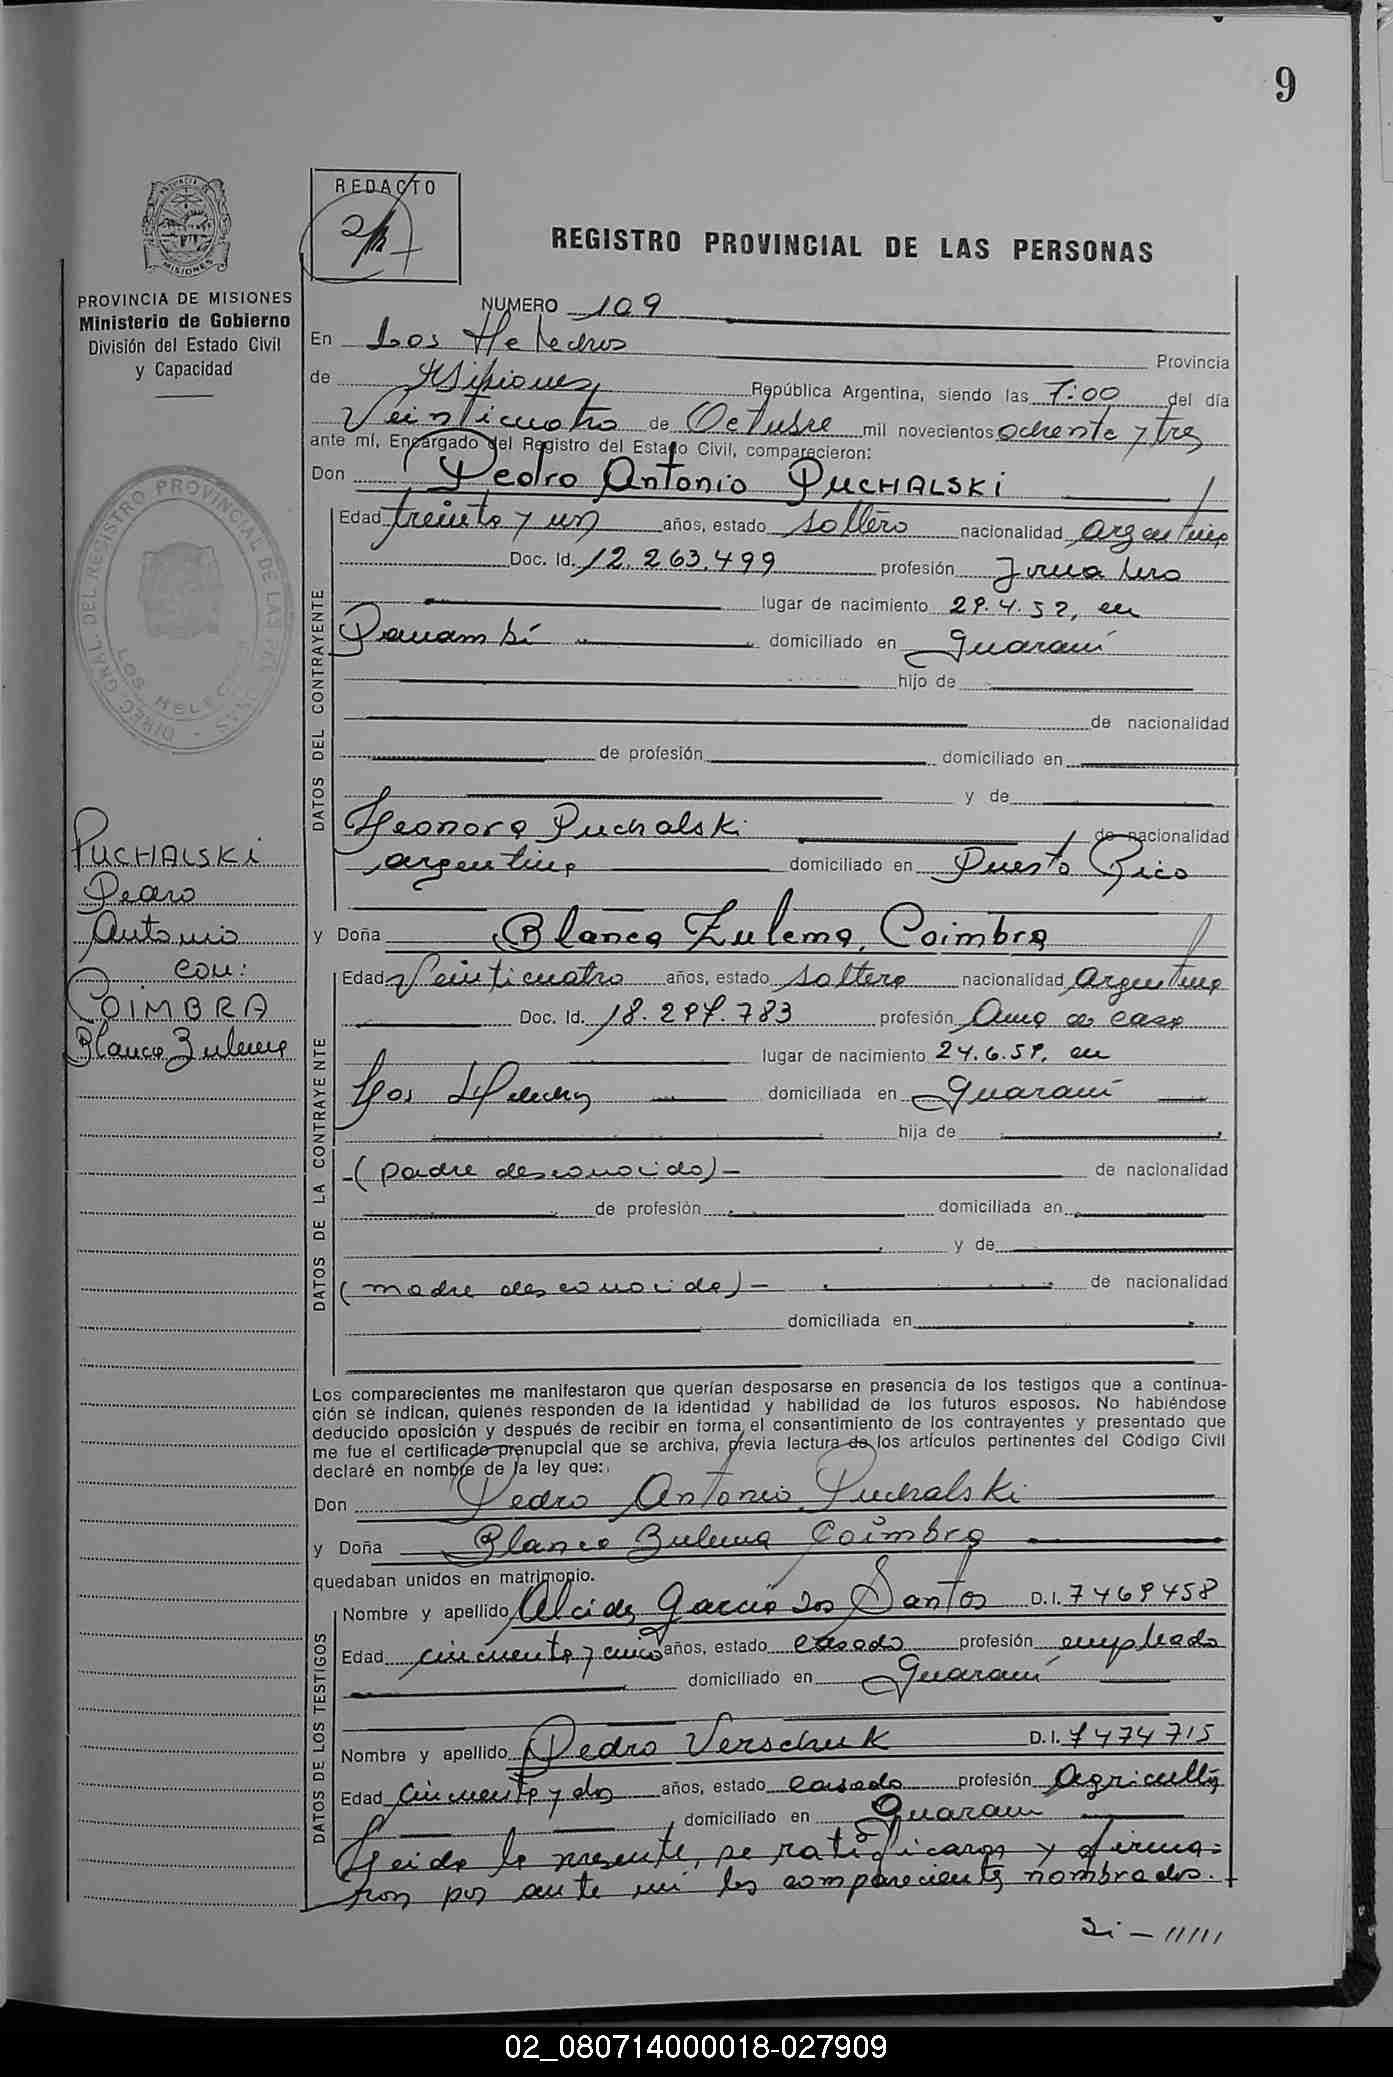 9
REDACTO
REGISTRO PROVINCIAL DE LAS PERSONAS
PROVINCIA DE MISIONES
MISIONES
PROVINCIA DE MISIONES
Ministerio de Gobierno
División del Estado Civil
y Capacidad
DIREC. GRAL. DEL REGISTRO PROVINCIAL DE LAS PERSONAS
LOS HELECHOS
PUCHALSKI
Pedro
Antonio
con:
COIMBRA
Blanca Zulema
NUMERO 109
En Los Helechos Provincia
de Misiones República Argentina, siendo las 7:00 del día
Veinticuatro de Octubre mil novecientos ochenta y tres
ante mí, Encargado del Registro del Estado Civil, comparecieron:
Don Pedro Antonio PUCHALSKI
DATOS DEL CONTRAYENTE
Edad treinta y un años, estado soltero nacionalidad argentina
Doc. Id. 12.263.499 profesión Jornalero
lugar de nacimiento 29.4.52, en
Panambí domiciliado en Guaraní
hijo de
de nacionalidad
de profesión domiciliado en
y de
Leonora Puchalski de nacionalidad
argentina domiciliado en Puerto Rico
y Doña Blanca Zulema Coimbra
DATOS DE LA CONTRAYENTE
Edad Veinticuatro años, estado soltera nacionalidad Argentina
Doc. Id. 18.297.783 profesión Ama de casa
lugar de nacimiento 24.6.59, en
Los Helechos domiciliada en Guaraní
hija de
-(padre desconocido)- de nacionalidad
de profesión domiciliada en
y de
(madre desconocida)- de nacionalidad
domiciliada en
Los comparecientes me manifestaron que querían desposarse en presencia de los testigos que a continua-
ción se indican, quienes responden de la identidad y habilidad de los futuros esposos. No habiéndose
deducido oposición y después de recibir en forma el consentimiento de los contrayentes y presentado que
me fue el certificado prenupcial que se archiva, previa lectura de los artículos pertinentes del Código Civil
declaré en nombre de la ley que:
Don Pedro Antonio Puchalski
y Doña Blanca Zulema Coimbra
quedaban unidos en matrimonio.
DATOS DE LOS TESTIGOS
Nombre y apellido Alcides García dos Santos D.I. 7469458
Edad cincuenta y cinco años, estado casado profesión empleado
domiciliado en Guaraní
Nombre y apellido Pedro Verschuk D.I. 7474715
Edad cincuenta y dos años, estado casado profesión Agricultor
domiciliado en Guaraní
Leida la presente, se ratificaron y firma=
ron por ante mí los comparecientes nombrados.
02_080714000018-027909